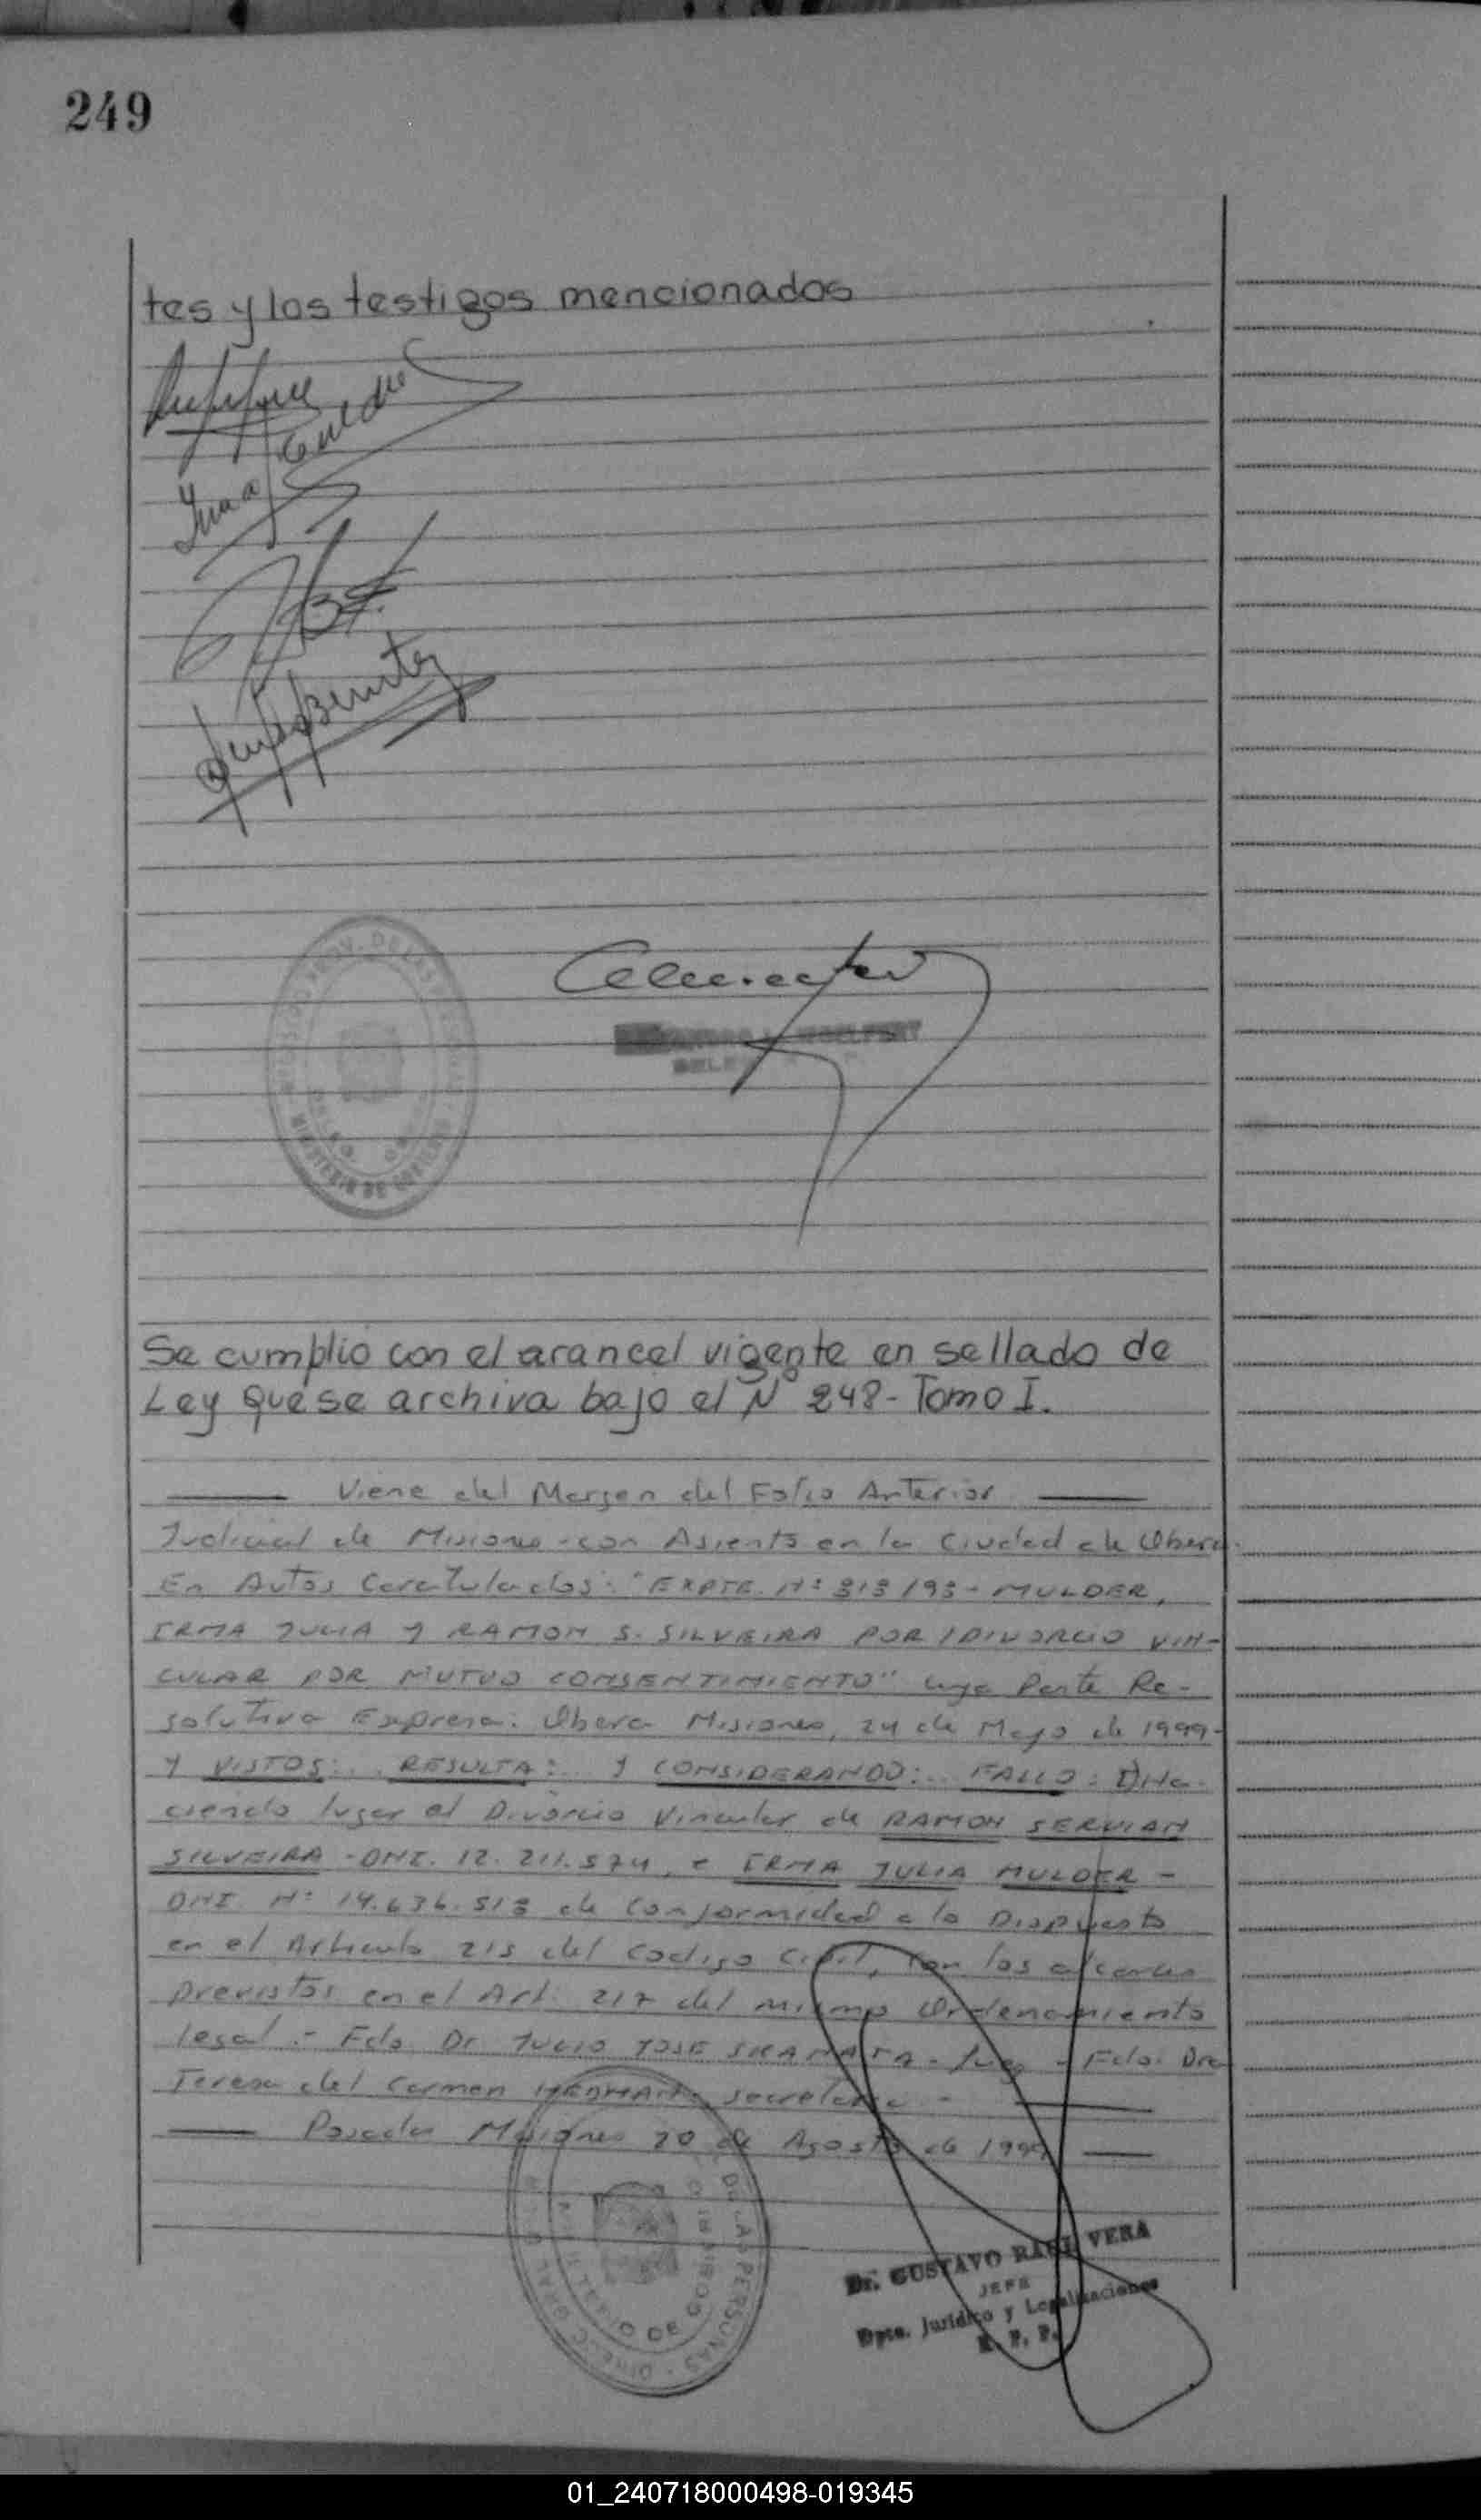 249
tes y los testigos mencionados
Irma Mulder
Benitez
Se cumplio con el arancel vigente en sellado de
Ley que se archiva bajo el Nº 248 - Tomo I.
Viene del Margen del Folio Anterior
Judicial de Misiones - con Asiento en la Ciudad de Obera.
En Autos Caratulados: "EXPTE. Nº 313/93 - MULDER,
IRMA JULIA Y RAMON S. SILVEIRA POR /DIVORCIO VIN-
CULAR POR MUTUO CONSENTIMIENTO" cuya Parte Re-
solutiva Expresa: Obera Misiones, 24 de Mayo de 1999-
Y VISTOS:.. RESULTA:.. Y CONSIDERANDO:.. FALLO: Ha-
ciendo lugar al Divorcio Vincular de RAMON SERVIAN
SILVEIRA - DNI. 12.211.574, e IRMA JULIA MULDER -
DNI. Nº 14.636.513 de Conformidad a lo Dispuesto
en el Articulo 215 del Codigo Civil, con los alcances
previstos en el Art. 217 del mismo Ordenamiento
legal.- Fdo. Dr JULIO JOSE - Juez - Fdo. Dra
Teresa del Carmen secretaria -
Posadas Misiones 20 de Agosto de 1999
Dr. GUSTAVO RAUL VERA
JEFE
Dpto. Jurídico y Legalizaciones
R. P. P.
01_240718000498-019345